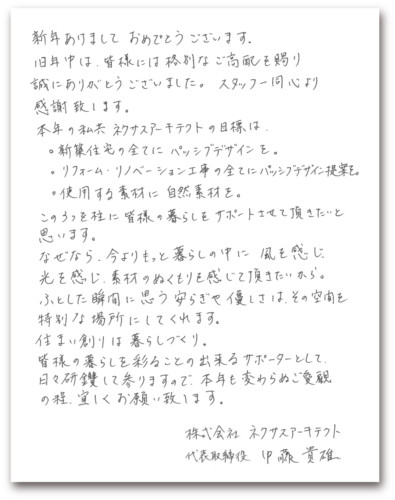 新年あけまして おめでとうございます。
旧年中は、皆様には格別なご高配を賜り
誠にありがとうございました。スタッフ一同心より
感謝致します。
本年の私共 ネクサスアーキテクトの目標は、
。新築住宅の全てに パッシブデザインを。
。リフォーム・リノベーション工事の全てにパッシブデザイン提案を。
。使用する素材に 自然素材を。
この3つを柱に皆様の暮らしをサポートさせて頂きたいと
思います。
なぜなら、今よりもっと暮らしの中に 風を感じ、
光を感じ、素材のぬくもりを感じて頂きたいから。
ふとした瞬間に思う安らぎや優しさは、その空間を
特別な場所にしてくれます。
住まい創りは暮らしづくり。
皆様の暮らしを彩ることの出来るサポーターとして、
日々研鑽して参りますので、本年も変わらぬご愛顧
の程、宜しくお願い致します。
株式会社 ネクサスアーキテクト
代表取締役 伊藤貴雄